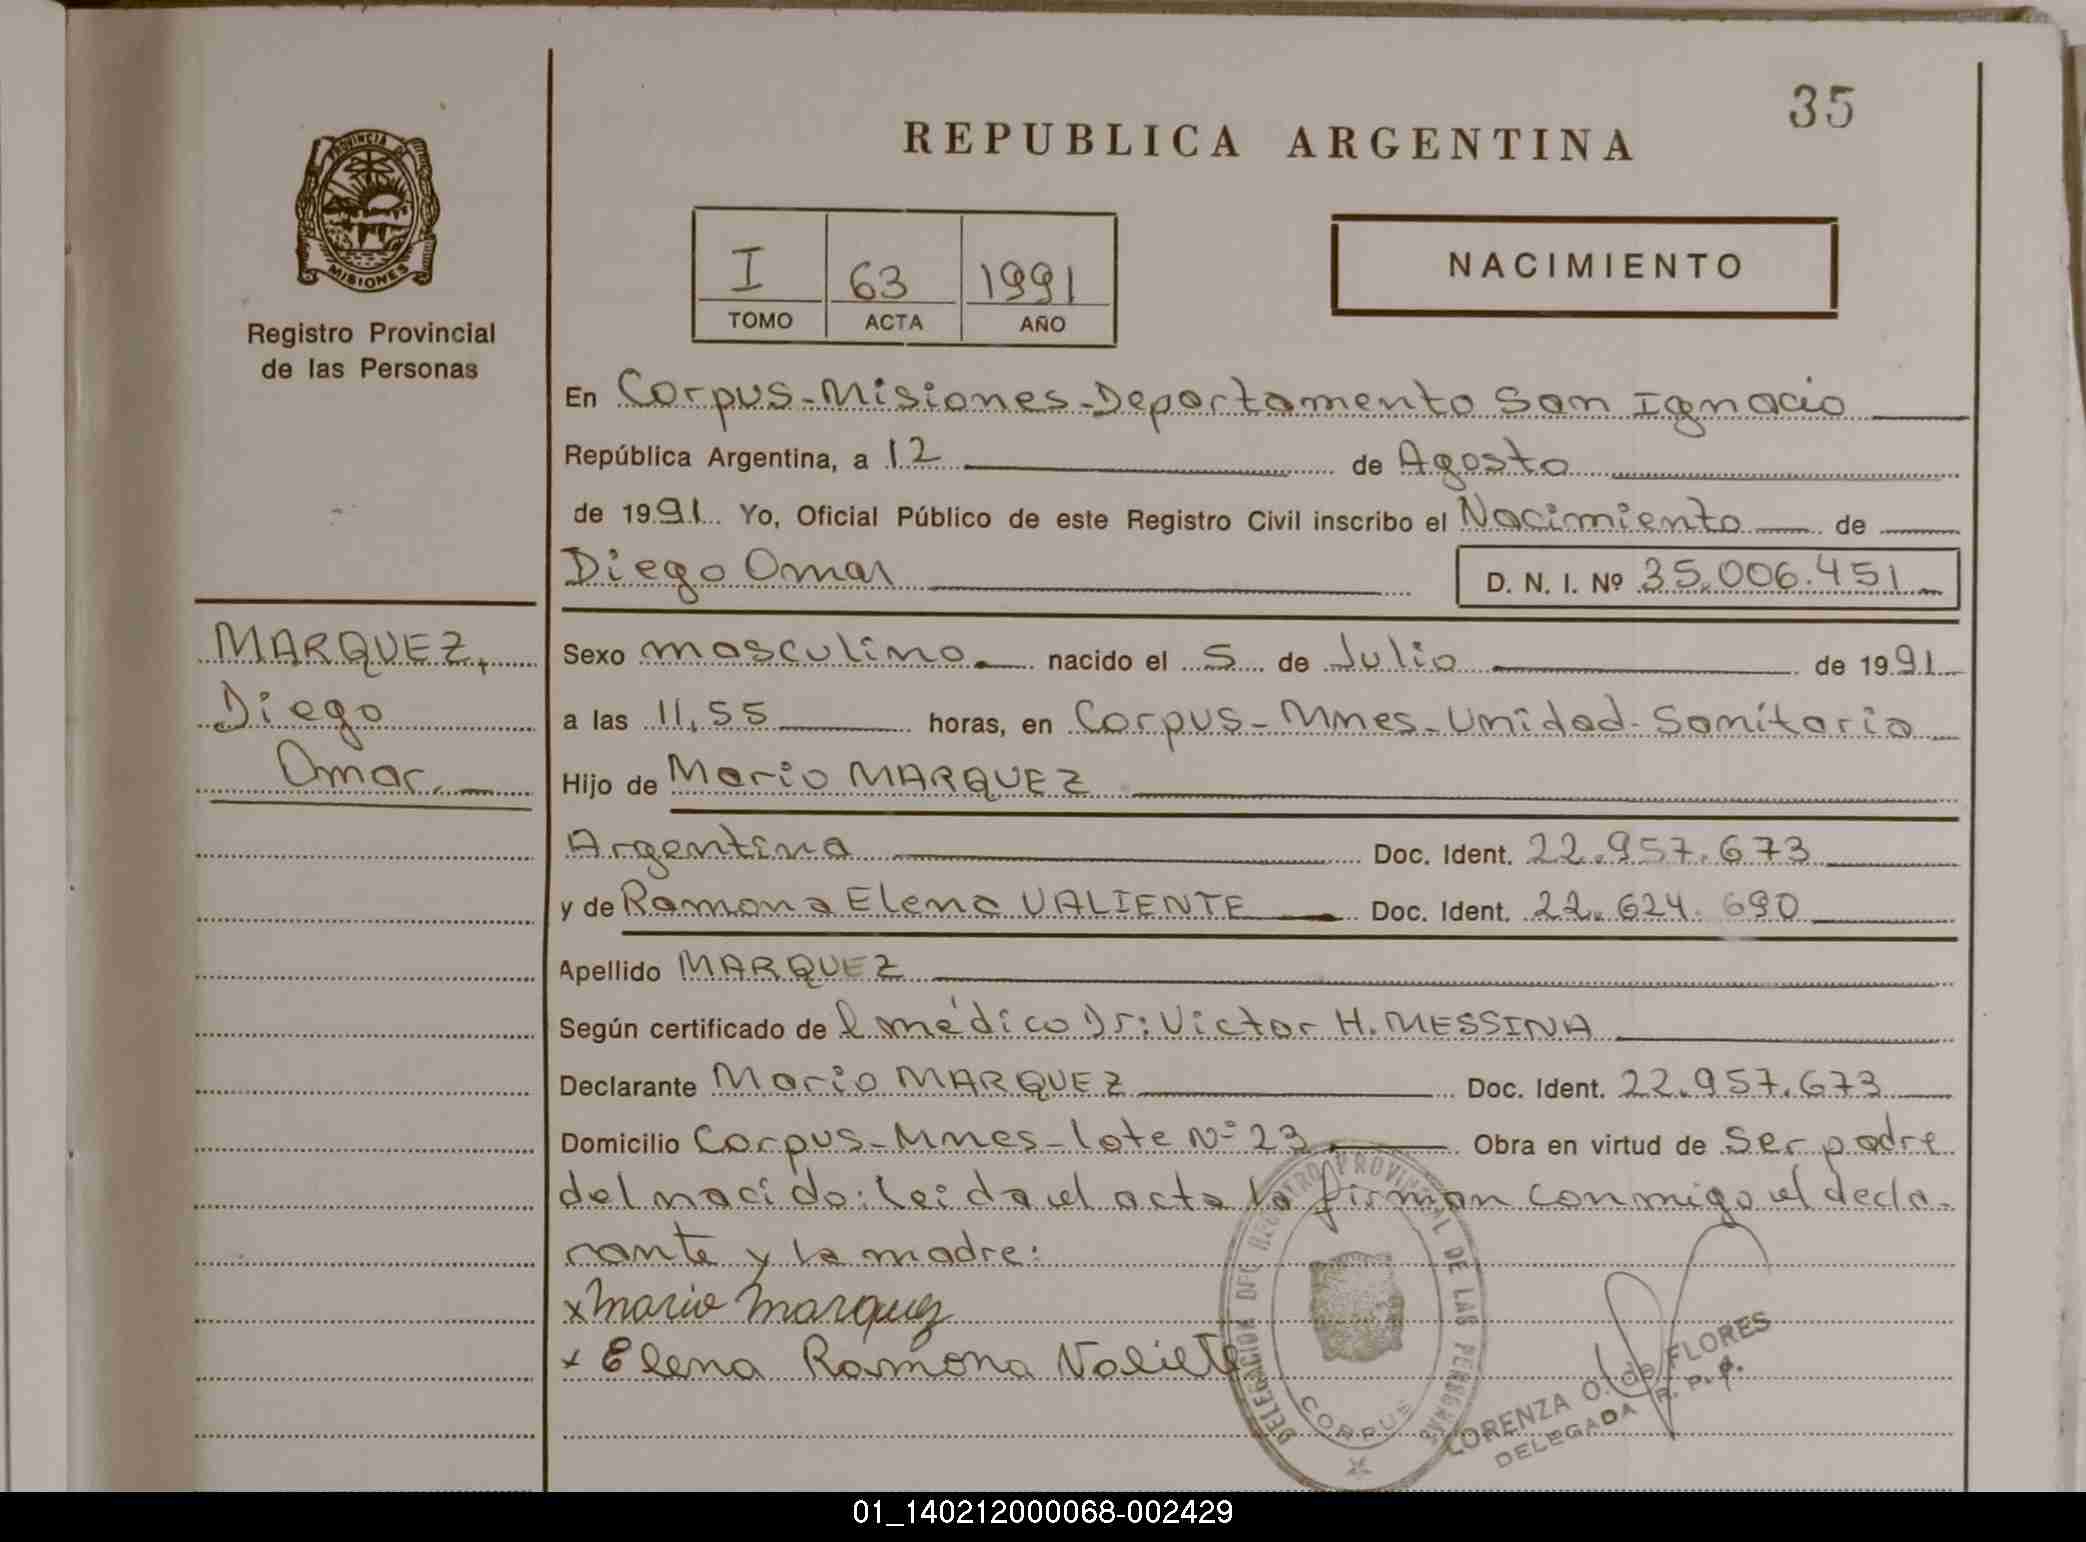 35
REPUBLICA ARGENTINA
PROVINCIA DE
MISIONES
Registro Provincial
de las Personas
I 63 1991
TOMO ACTA AÑO
NACIMIENTO
En Corpus-Misiones-Departamento San Ignacio
República Argentina, a 12 de Agosto
de 1991 Yo, Oficial Público de este Registro Civil inscribo el Nacimiento de
Diego Omar D. N. I. Nº 35.006.451
MARQUEZ,
Diego
Omar.
Sexo masculino nacido el 5 de Julio de 1991
a las 11,55 horas, en Corpus-Mnes-Unidad-Sanitaria
Hijo de Mario MARQUEZ
Argentina Doc. Ident. 22.957.673
y de Ramona Elena VALIENTE Doc. Ident. 22.624.690
Apellido MARQUEZ
Según certificado de l médico Dr: Victor H. MESSINA
Declarante Mario MARQUEZ Doc. Ident. 22.957.673
Domicilio Corpus-Mnes-lote Nº 23 Obra en virtud de Ser padre
del nacido: leida el acta la firman conmigo el decla-
rante y la madre:
x Mario Marquez
x Elena Ramona Valiete
DELEGACION DEL REGISTRO PROVINCIAL DE LAS PERSONAS
CORPUS
LORENZA O. de FLORES
DELEGADA R. P. P.
01_140212000068-002429